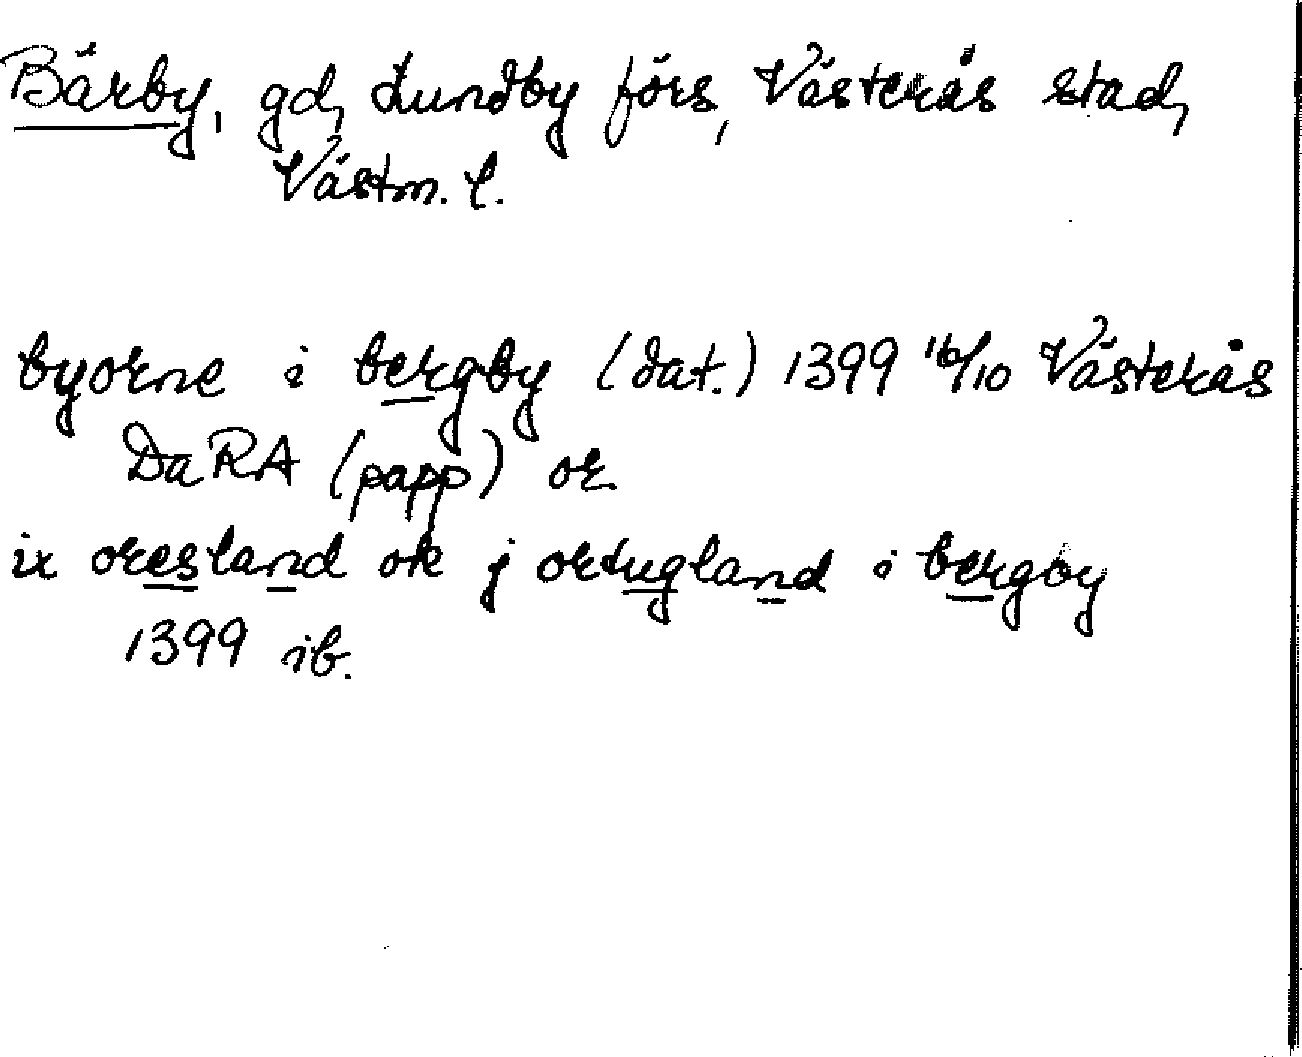 Bärby, gd, Lundby förs, Västerås stad,
Västm. l.
byorne i bergby (dat.) 1399 16/10 Västerås
DaRA (papp) or.
ix oresland ok j ortugland i bergby
1399 ib.